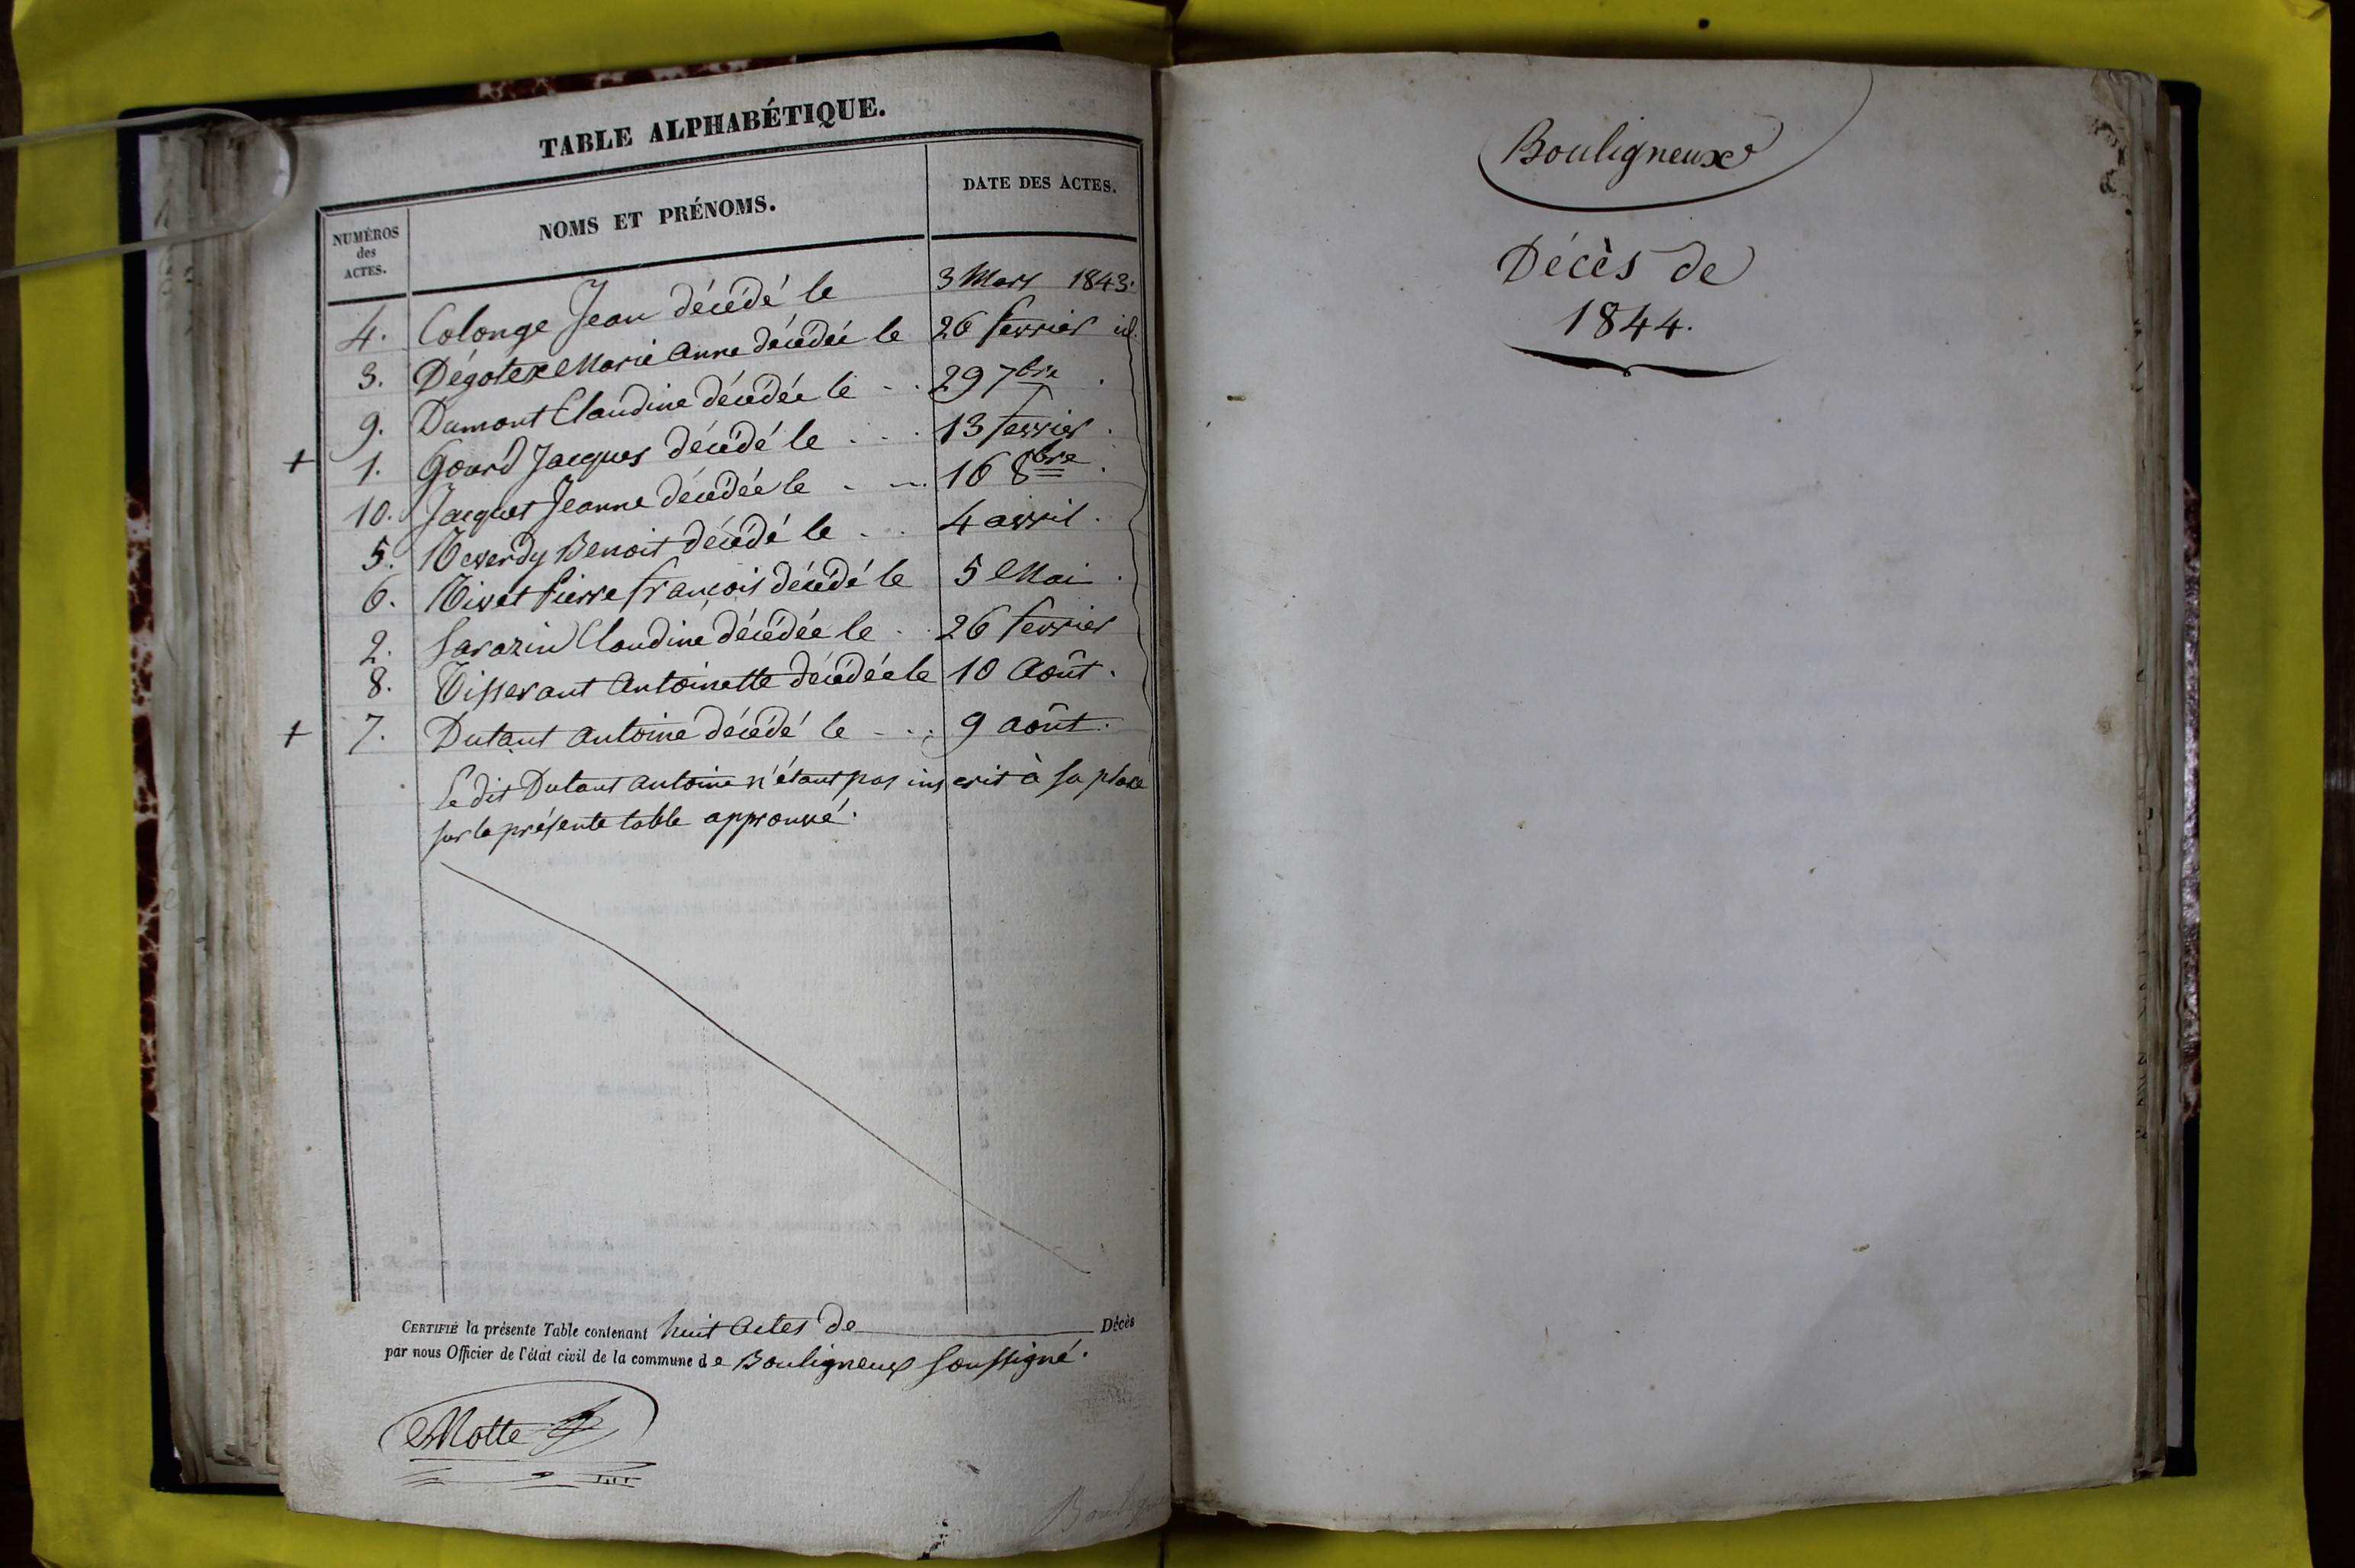 TABLE ALPHABÉTIQUE.
NUMÉROS
des
ACTES.
NOMS ET PRÉNOMS.
DATE DES ACTES.
4. Colonge Jean décédé le 3 Mars 1843.
3. Dégotex Marie Anne décédée le 26 fevrier id.
9. Dumont Claudine décédée le - . 29 7bre .
+ 1. Gourd Jacques décédé le . . . 13 fevrier .
10. Jacquet Jeanne décédée le . -. 16 8bre .
5. Reverdy Benoit décédé le . . 4 avril .
6. Rivet Pierre françois décédé le 5 Mai .
2. Sarazin Claudine décédée le . 26 fevrier
8. Tisserant Antoinette décédée le 10 Août .
+ 7. Dutant Antoine décédé le - . . 9 août .
Le dit Dutant Antoine n'étant pas inscrit à sa place
sur la présente table approuvé.
CERTIFIÉ la présente Table contenant huit Actes de Décès
par nous Officier de l'état civil de la commune de Bouligneux soussigné.
Motte
Bouligneux
Décès de
1844.